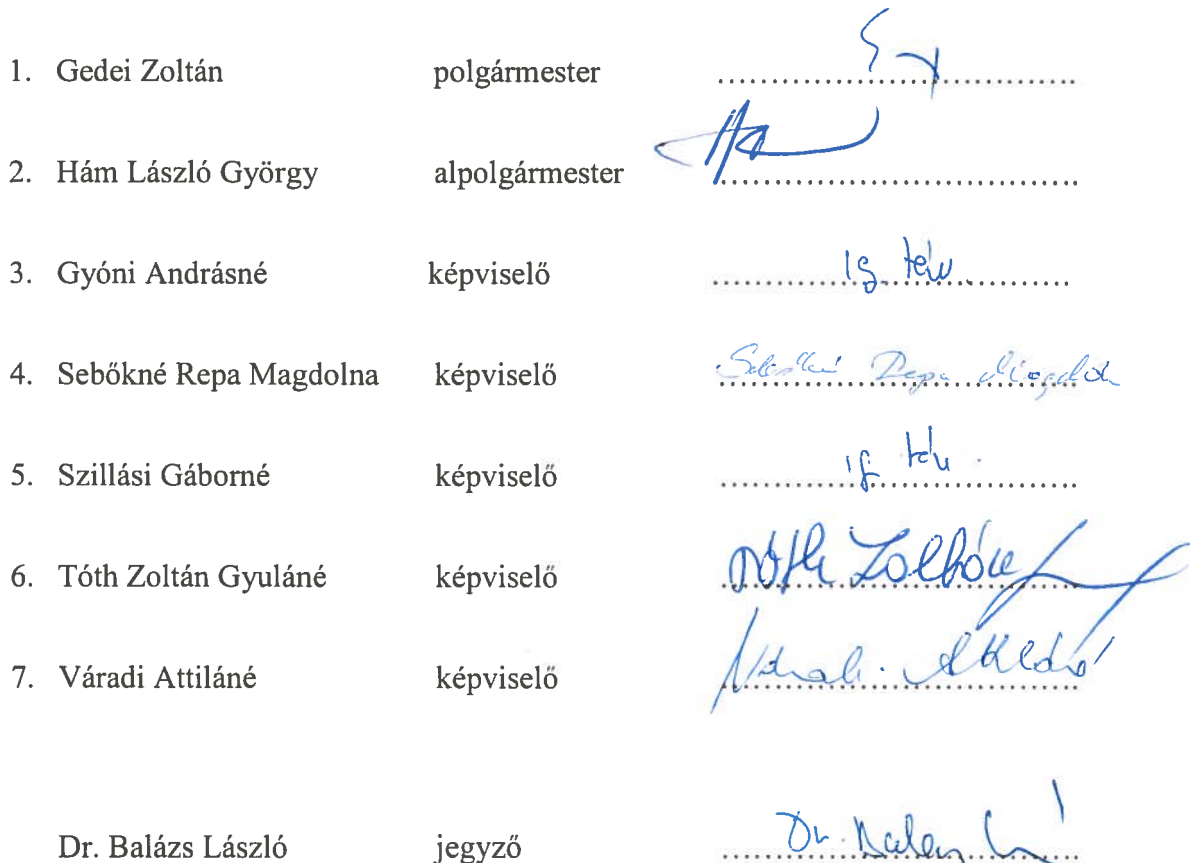 1. Gedei Zoltán polgármester
2. Hám László György alpolgármester
3. Gyóni Andrásné képviselő ig. táv.
4. Sebőkné Repa Magdolna képviselő Sebőkné Repa Magdolna
5. Szillási Gáborné képviselő ig. táv.
6. Tóth Zoltán Gyuláné képviselő Tóth Zoltán
7. Váradi Attiláné képviselő Váradi Attiláné
Dr. Balázs László jegyző Dr. Balázs